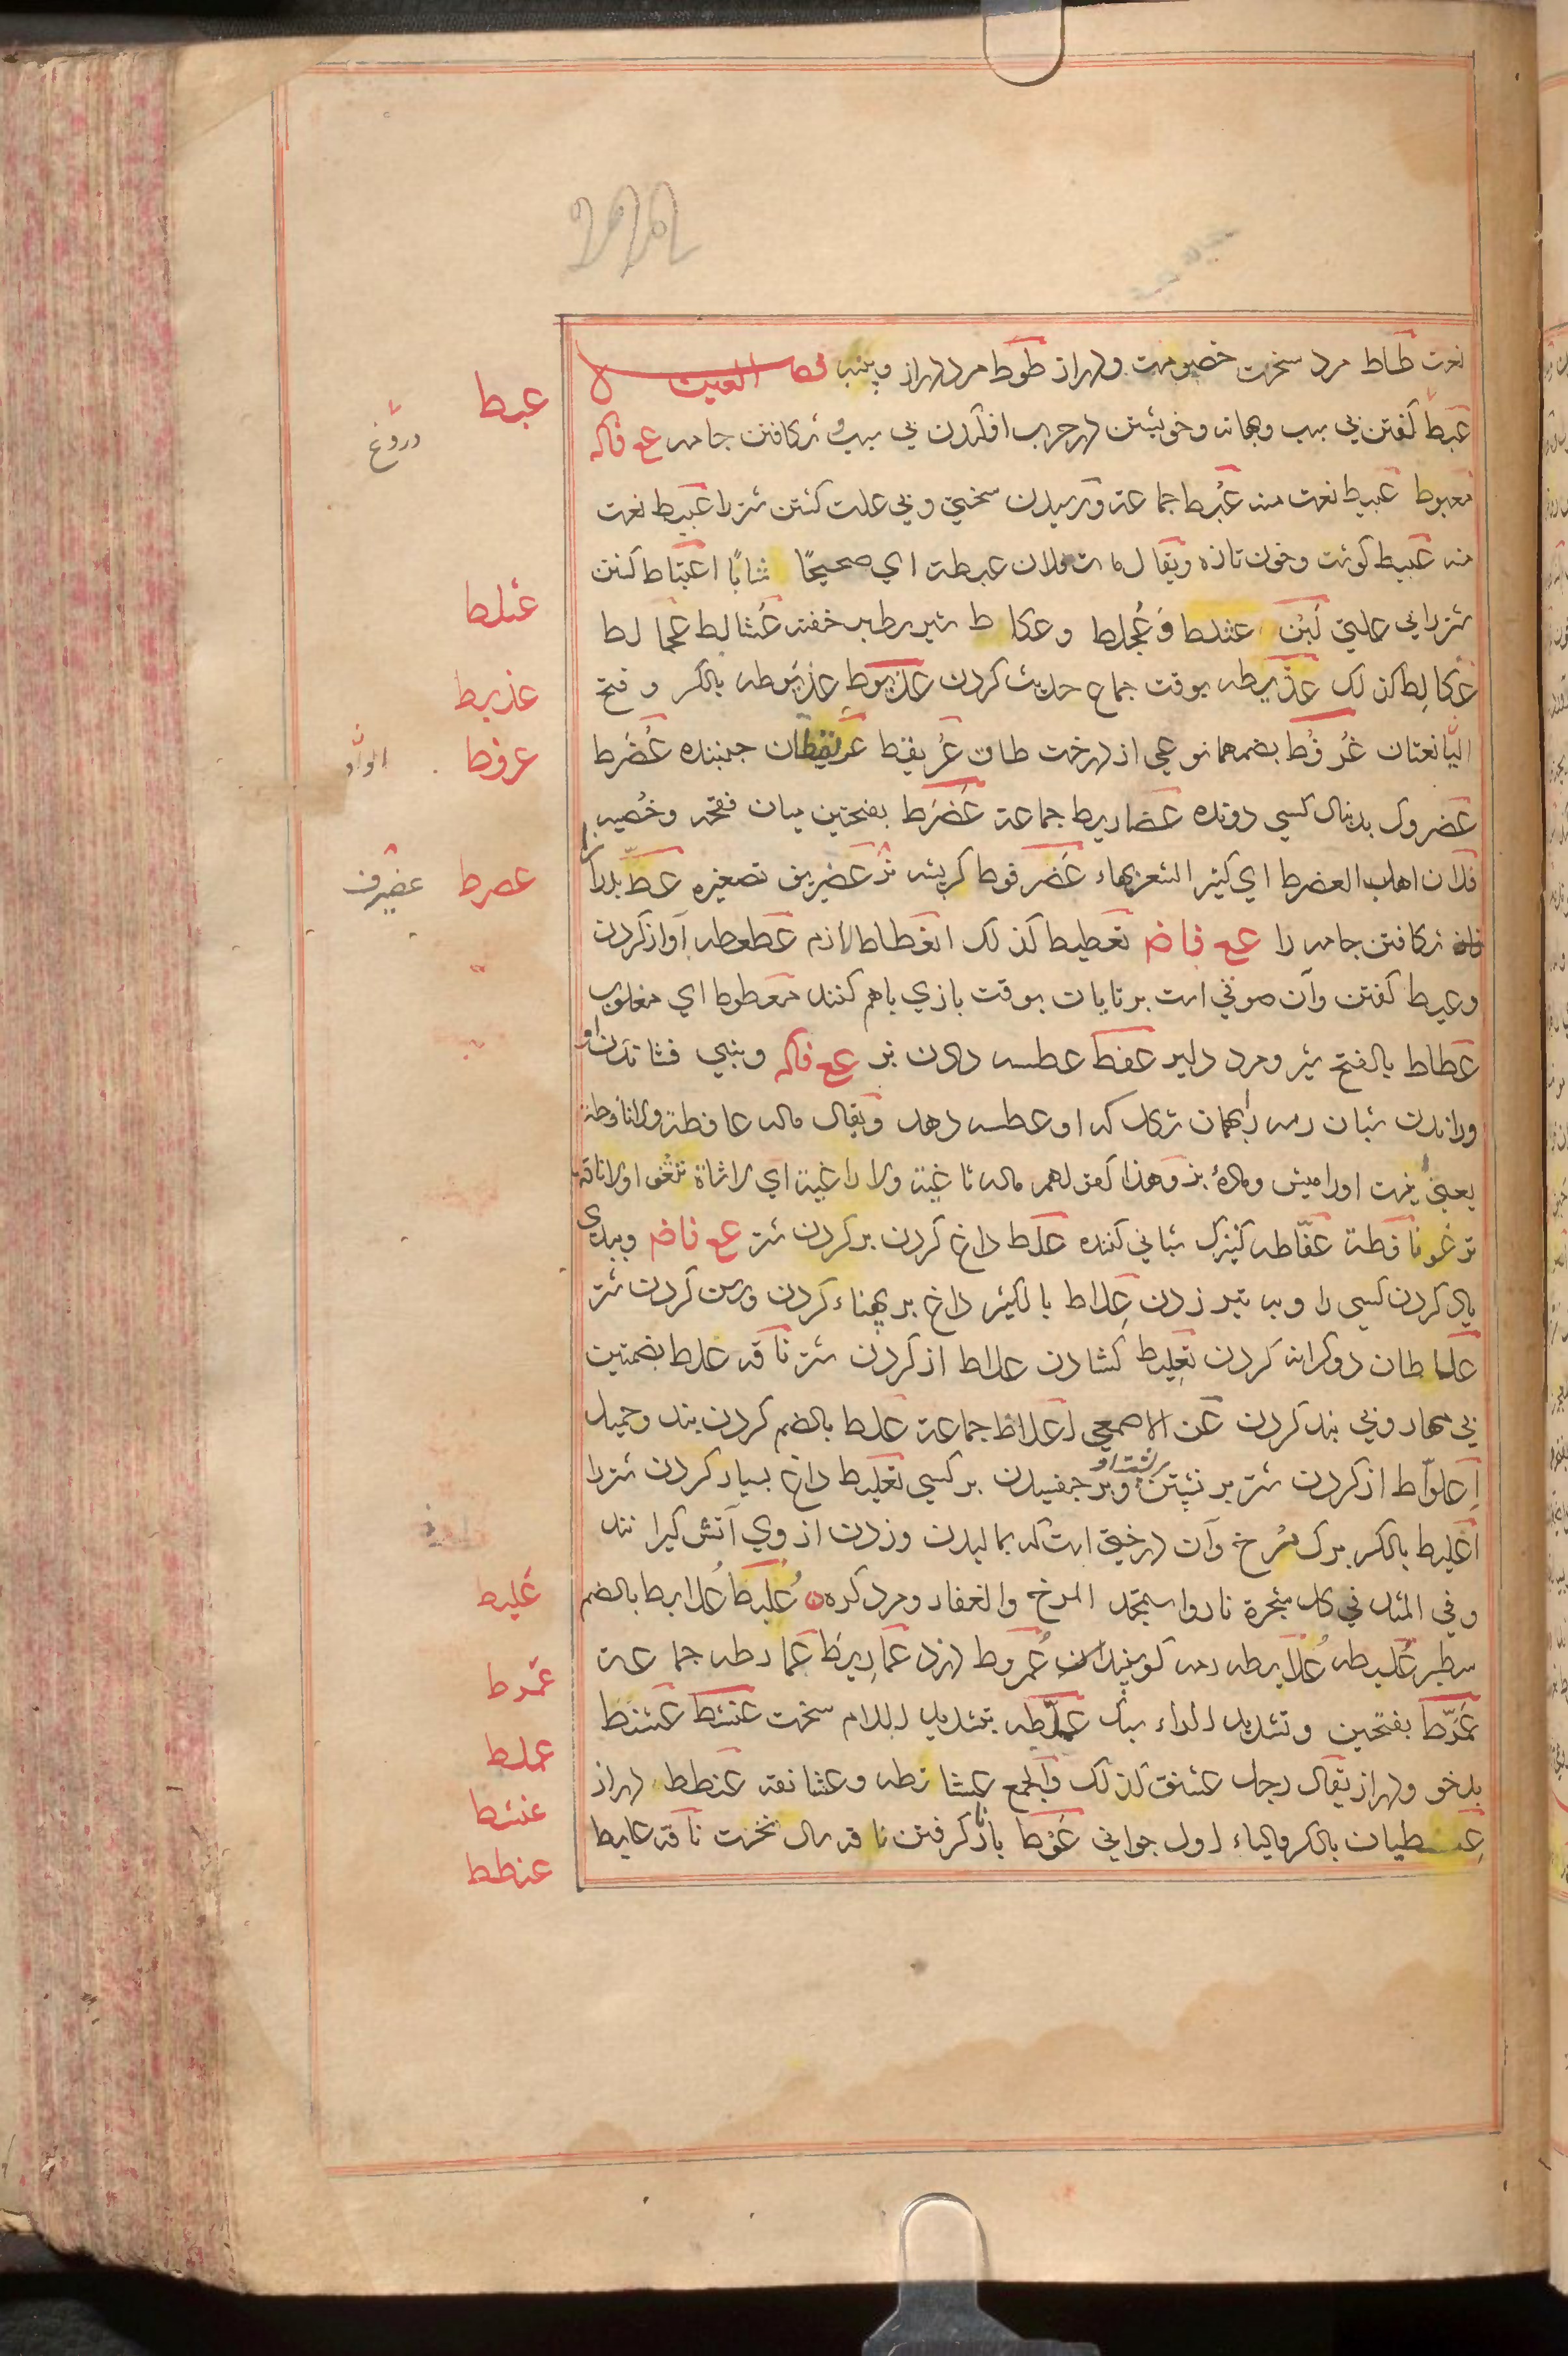 نعت طاط مرد سخت خصومت و دراز طوط مرد دراز و پنبه فصل العين
عبط كفتن بي سبب وبهانه وخويشتن در حرب افكندن بي سبب و شكافتن جامه ع فاكه
معبوط عبيط نعت منه عُبُط جماعة ورسيدن سختي و بي علت كشتن شتر را عبيط نعت
منه عبيط كوشت وخون تازه ويقال مات فلان عبطة اي صحيحًا شابًا اعتباط كشتن
شتر را بي علتي لَبَن عثلط وَعُجلط وعكلط شير سطبر خفته عُثالط عُجالط
عُكالِط كذلك عذيطه بوقت جماع حديث كردن عذيوط عذيوطه بالكسر و فتح
اليا نعتان عُرفُط بضمهما نوعي از درخت طلق عُريقط عُريقطان جنبنده عُضرط
عضروط بدنبال كسي دونده عضاريط جماعة عَضرَط بفتحتين ميان فقحه وخُصيه
فلان اهلب العضرط اي كثير الشعر بها عَضرفوط كربشه نر عضيريف تصغيره عطّ
شكافتن جامه را ع فاض تعطيط كذلك انعطاط لازم عطعطه آواز كردن
وعيط كفتن وآن صوتي است برنايان بوقت بازي باهم كنند معطوط اي مغلوب
عطاط بالفتح شير ومرد دلير عفط عطسه دادن بز ع فاكه وبيني فشاندن او
وراندن شبان رمه را بهمان شكل كه او عطسه دهد ويقال ماله عافطة ولا نافطة
يعني نيست اورا ميش وماده بز وهذا كقولهم ماله ثاغية ولا راغية اي لا شاة تثغو اولا ناقة
ترغو نافطة عفّاطه كنيزك شباني كننده علط داغ كردن بر كردن شتر ع فاض وببدي
ياد كردن كسي را وبه تير زدن عِلاط بالكسر داغ بر پهناء كردن ورسن كردن شتر
علاطان دو كرانه كردن تعليط كشادن علاط از كردن شتر ناقه علط بضمتين
بي مهار وبي بند كردن عن الاصمعي اعلاط جماعة علط بالضم كردن بند وحميل
اِعلوّاط از كردن شتر بر نشستن بر پشت او وبر چفسيدن بر كسي تعليط داغ بسيار كردن شتر را
اعليط بالكسر برك مرخ وآن درختي است كه بماليدن وزدن از وي آتش كيرانند
وفي المثل في كل شجرة نار واستمجد المرخ والعفار ومرد كره عُلبِط عُلابط بالضم
سطبر عُلبطه عُلابطه رمه كوسپندان عُمروط دزد عَمارِيط عَمارطه جماعة
عَمَرّط بفتحتين وتشديد الراء سبك عملّطه بتشديد اللام سخت عنشط عشنط
بدخو ودراز يقال رجل عشنق كذلك والجمع عشانطه وعشانقه عنطط دراز
عِنطيان بالكسر والياء اول جواني عَوط باز ناكرفتن ناقه سال نخست ناقه عايط
عبط
دروغ
عثلط
عذيط
عرفط
الواو
عصرط
عضيرف
عليط
عمرط
عملط
عنشط
عنطط